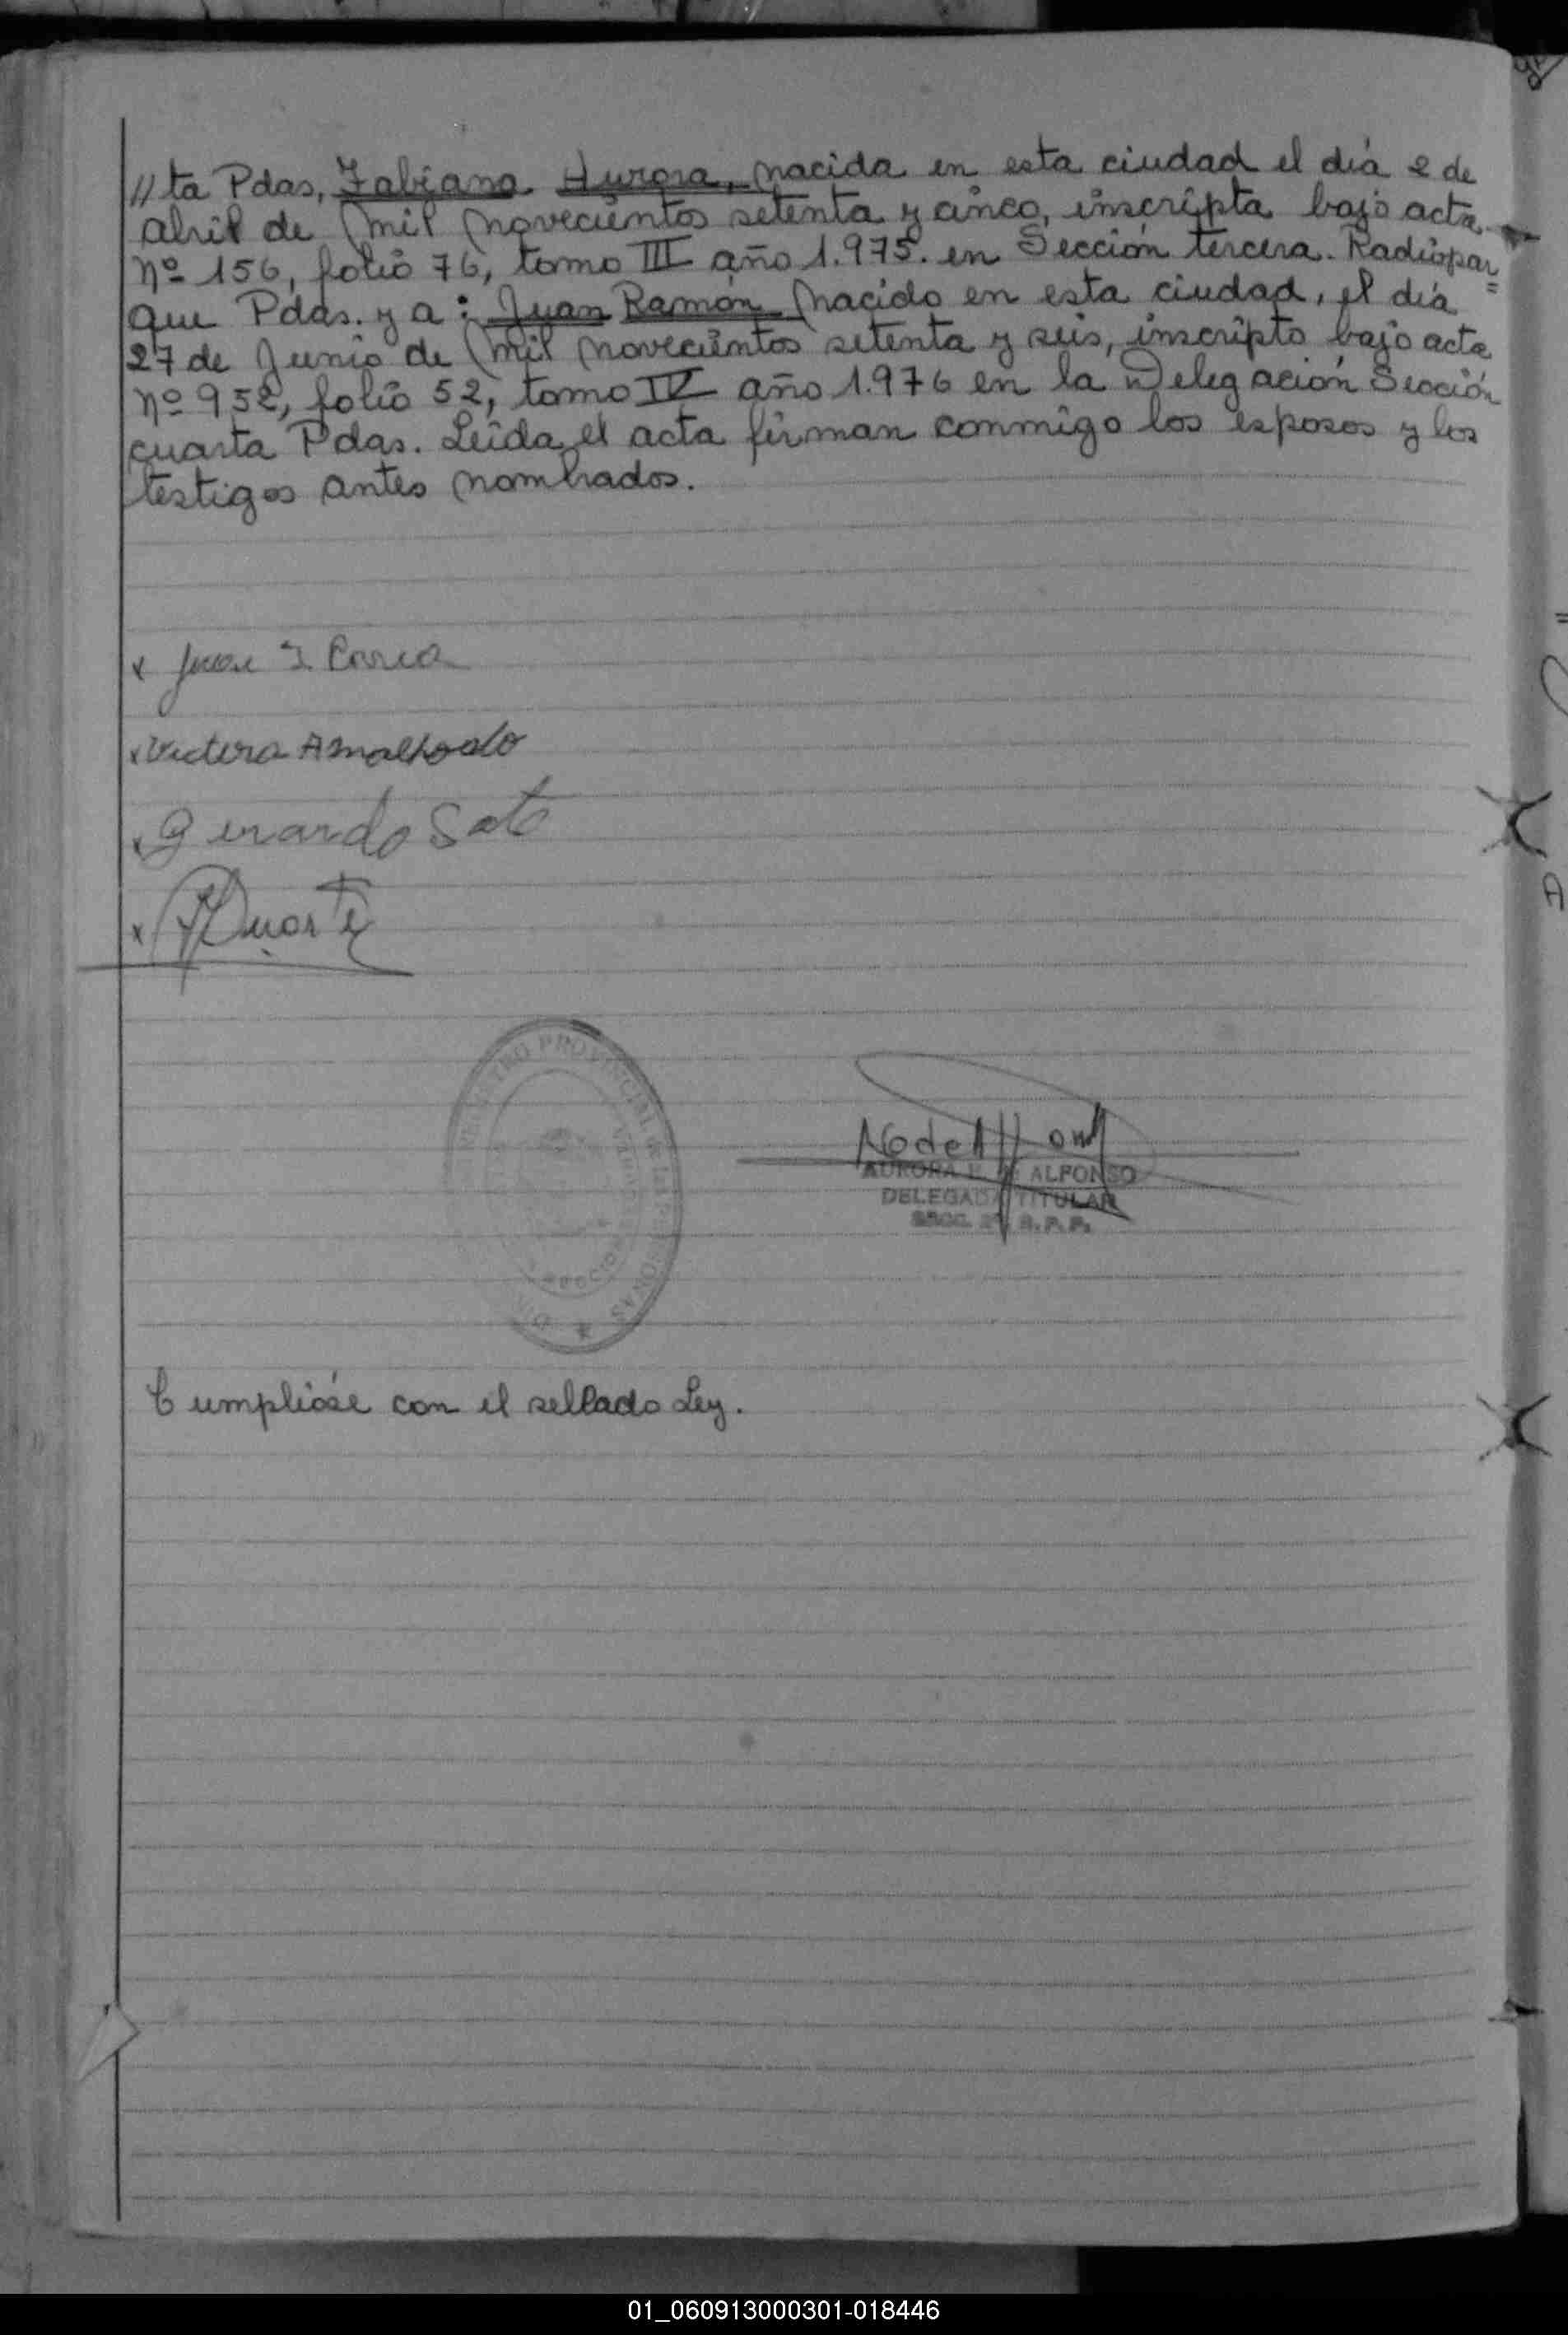 //ta Pdas, Fabiana Aurora, nacida en esta ciudad el día 2 de
abril de mil novecientos setenta y cinco, inscripta bajo acta
Nº 156, folio 76, tomo III año 1.975. en Sección tercera. Radiopar=
que Pdas. y a: Juan Ramón nacido en esta ciudad, el día
27 de Junio de mil novecientos setenta y seis, inscripto bajo acta
Nº 952, folio 52, tomo IV año 1.976 en la Delegación Sección
cuarta Pdas. Leída el acta firman conmigo los esposos y los
testigos antes nombrados.
x Juan
x
x Gerardo Soto
x Duarte
REGISTRO PROVINCIAL de las PERSONAS
AURORA ALFONSO
DELEGADA TITULAR
SECC. R.P.P.
Cumplióse con el sellado Ley.
01_060913000301-018446